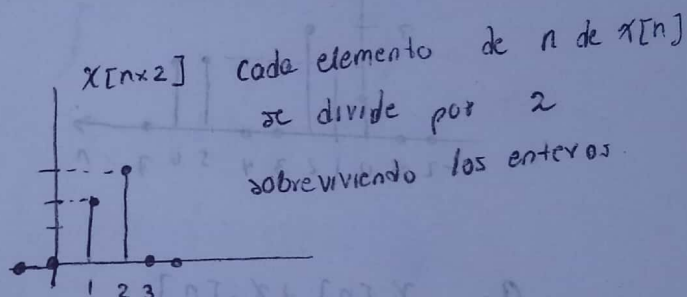 x[n×2] cada elemento de n de x[n]
se divide por 2
sobreviviendo los enteros.
1 2 3